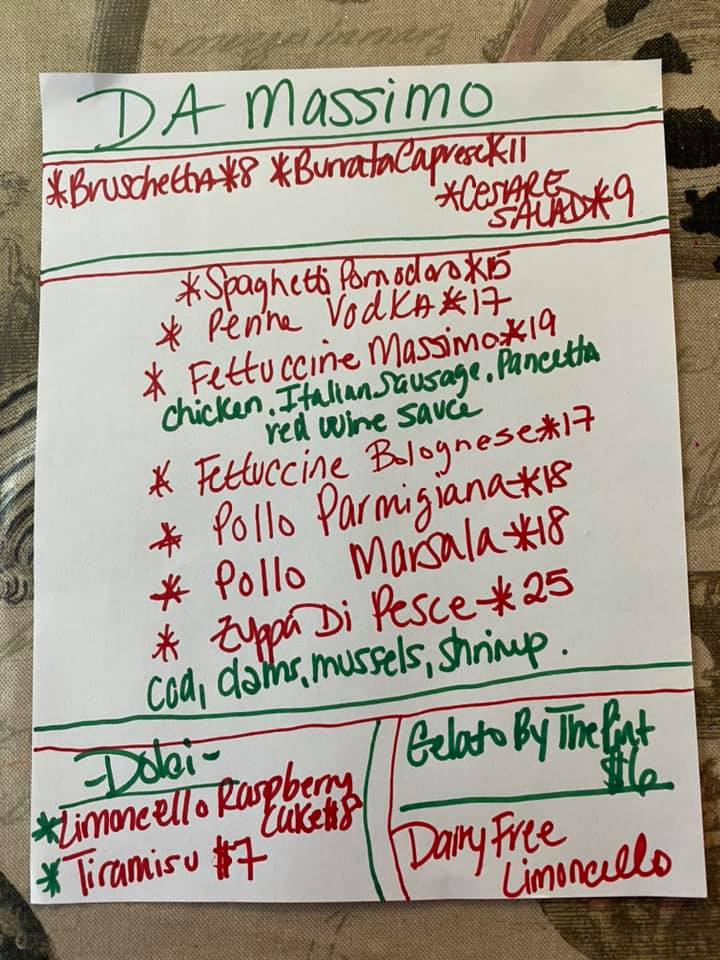 DA Massimo
*Bruschetta*8 *BurrataCaprese*11
*CESARE
SALAD*9
*Spaghetti Pomodoro*15
* Penne Vodka*17
* Fettuccine Massimo*19
chicken, Italian Sausage, Pancetta
red wine sauce
* Fettuccine Bolognese*17
* Pollo Parmigiana*18
* Pollo Marsala*18
* Zuppa Di Pesce*25
cod, clams, mussels, shrimp.
-Dolci-
*Limoncello Raspberry
Cake$8
*Tiramisu $7
Gelato By The Pint
$6
Dairy Free
Limoncello